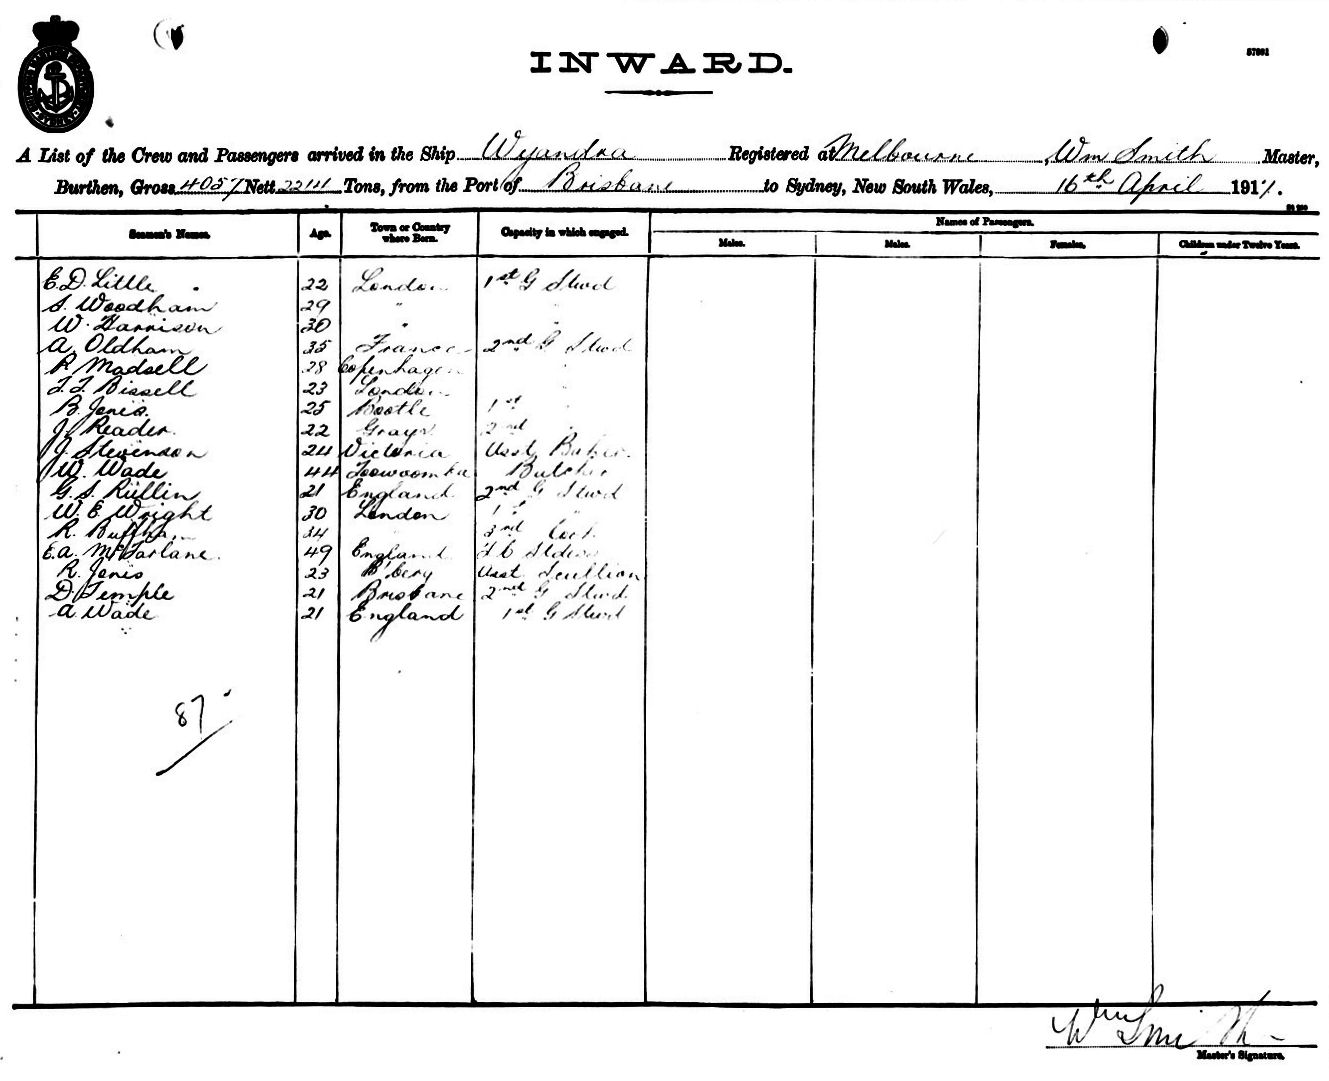 INWARD.
A List of the Crew and Passengers arrived in the Ship Wyandra Registered at Melbourne Wm Smith Master,
Burthen, Gross 4057 Nett 2214 Tons, from the Port of Brisbane to Sydney, New South Wales, 16th April 1917.
Names of Passengers.
Seamen's Names. Age. Town or Country where Born. Capacity in which engaged. Males. Males. Females. Children under Twelve Years.
E. D. Little 22 London 1st G Stwd
S. Woodham 29 " "
W. Harrison 30 " "
A. Oldham 35 France 2nd G Stwd
R Madsell 28 Copenhagen "
F. F. Bissell 23 London "
B. Jones. 25 Bootle 1st "
J. Reader. 22 Grays 2nd "
J. Stevenson 24 Victoria Asst. Baker.
W. Wade 44 Toowoomba Butcher
G. S. Rullin 21 England 2nd G Stwd
W. E. Wright 30 London 1st "
R. 34 3rd Cook
E. A. McFarlane. 49 England
R. Jones 23 B'bery Asst. Scullion
D. Temple 21 Brisbane 2nd G Stwd
A Wade 21 England 1st G Stwd
87
Wm Smith
Master's Signature.